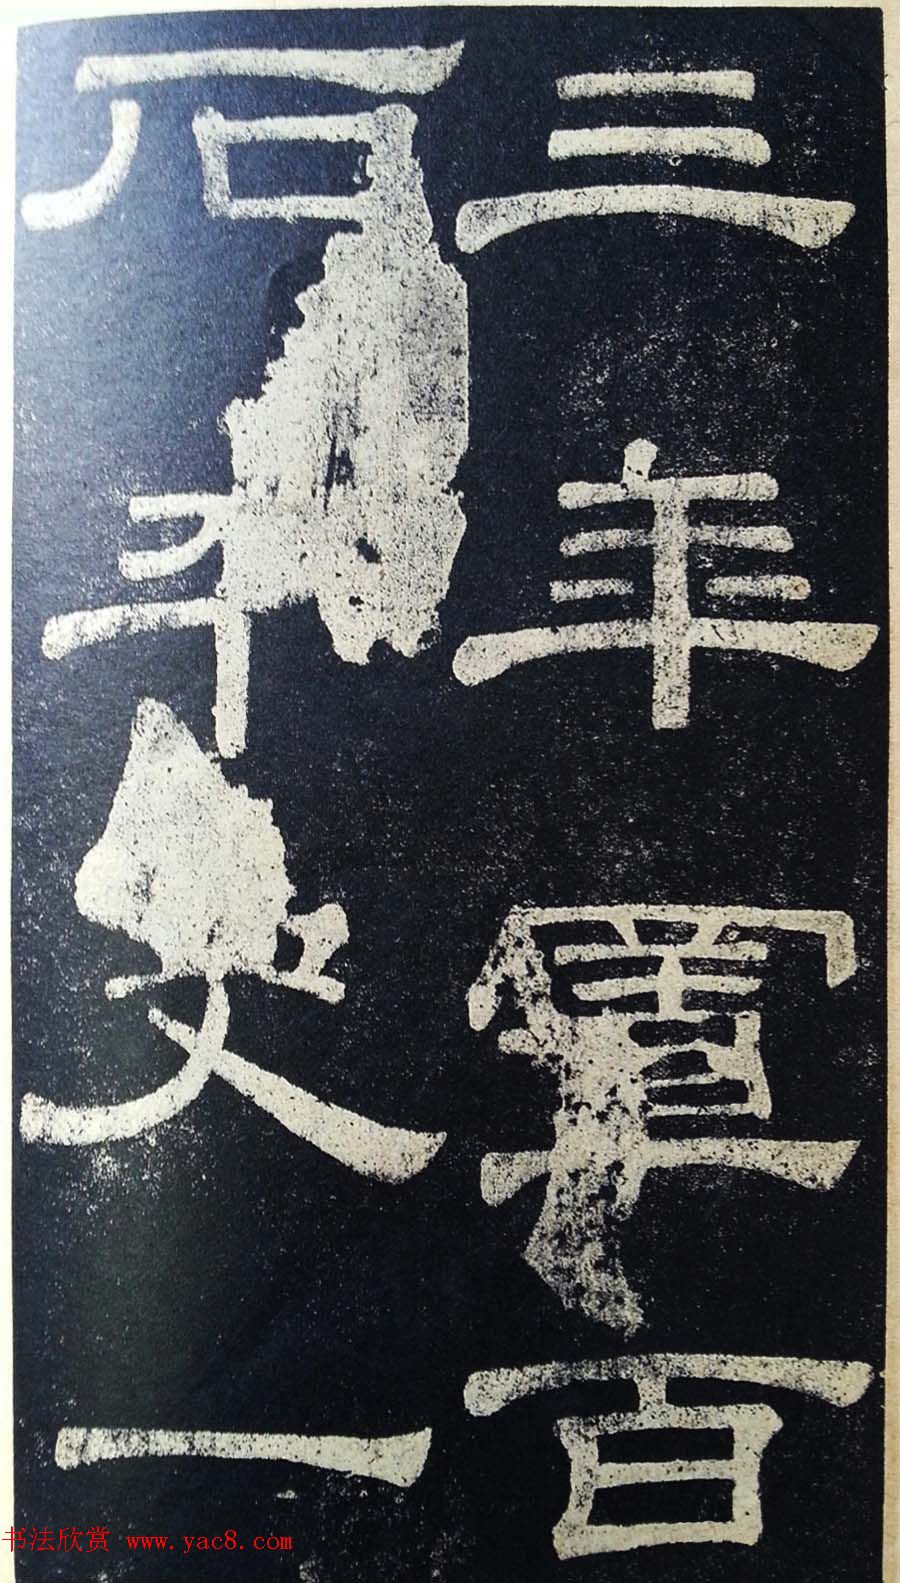 三年百
石卒史一
书法欣赏 www.yac8.com